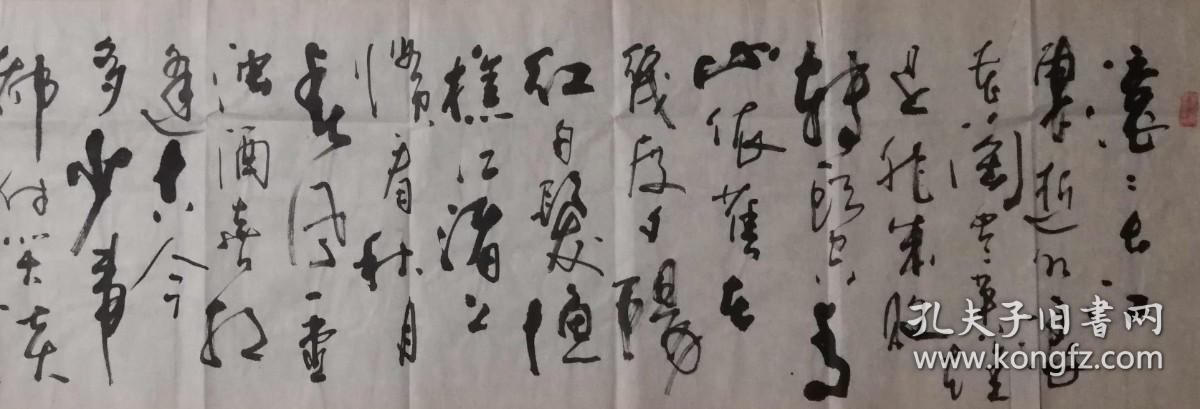 滚々长江
東逝水浪
花淘尽英雄
是非成敗
轉頭空青
山依舊在
幾度夕陽
紅白髮漁
樵江渚上
慣看秋月
春風一壺
濁酒喜相
逢古今
多少事
都付笑谈
孔夫子旧书网
www.kongfz.com